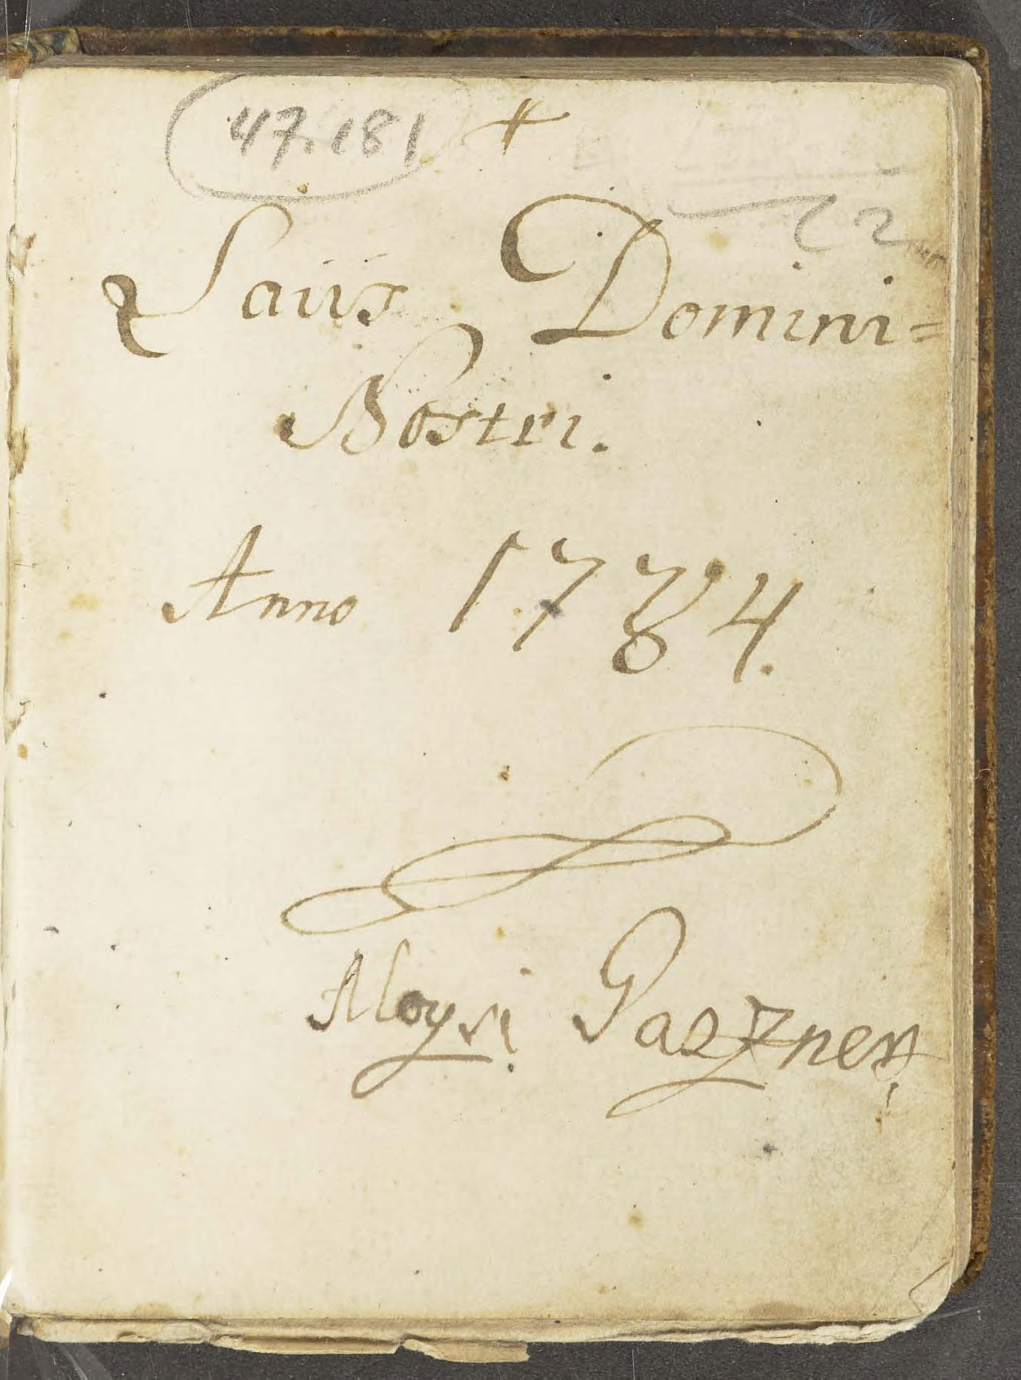 47.181
22
Laüs Domini=
Nostri.
Anno 1784.
Aloysi Gaszner